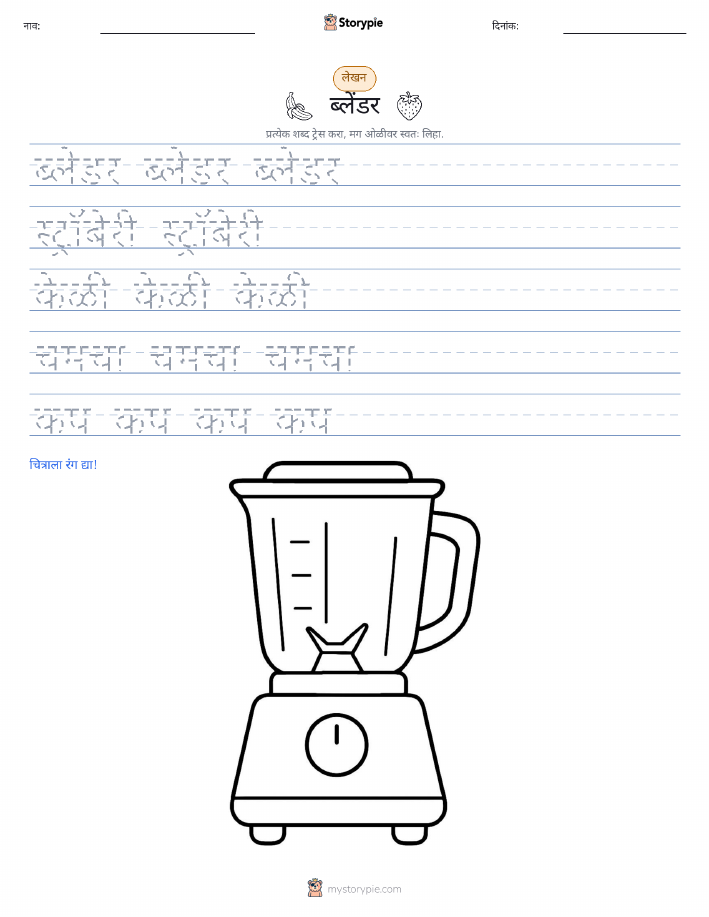 नाव:
Storypie
दिनांक:
लेखन
ब्लेंडर
प्रत्येक शब्द ट्रेस करा, मग ओळीवर स्वतः लिहा.
ब्लेंडर ब्लेंडर ब्लेंडर
स्ट्रॉबेरी स्ट्रॉबेरी
केळी केळी केळी
चमचा चमचा चमचा
कप कप कप कप
चित्राला रंग द्या!
mystorypie.com